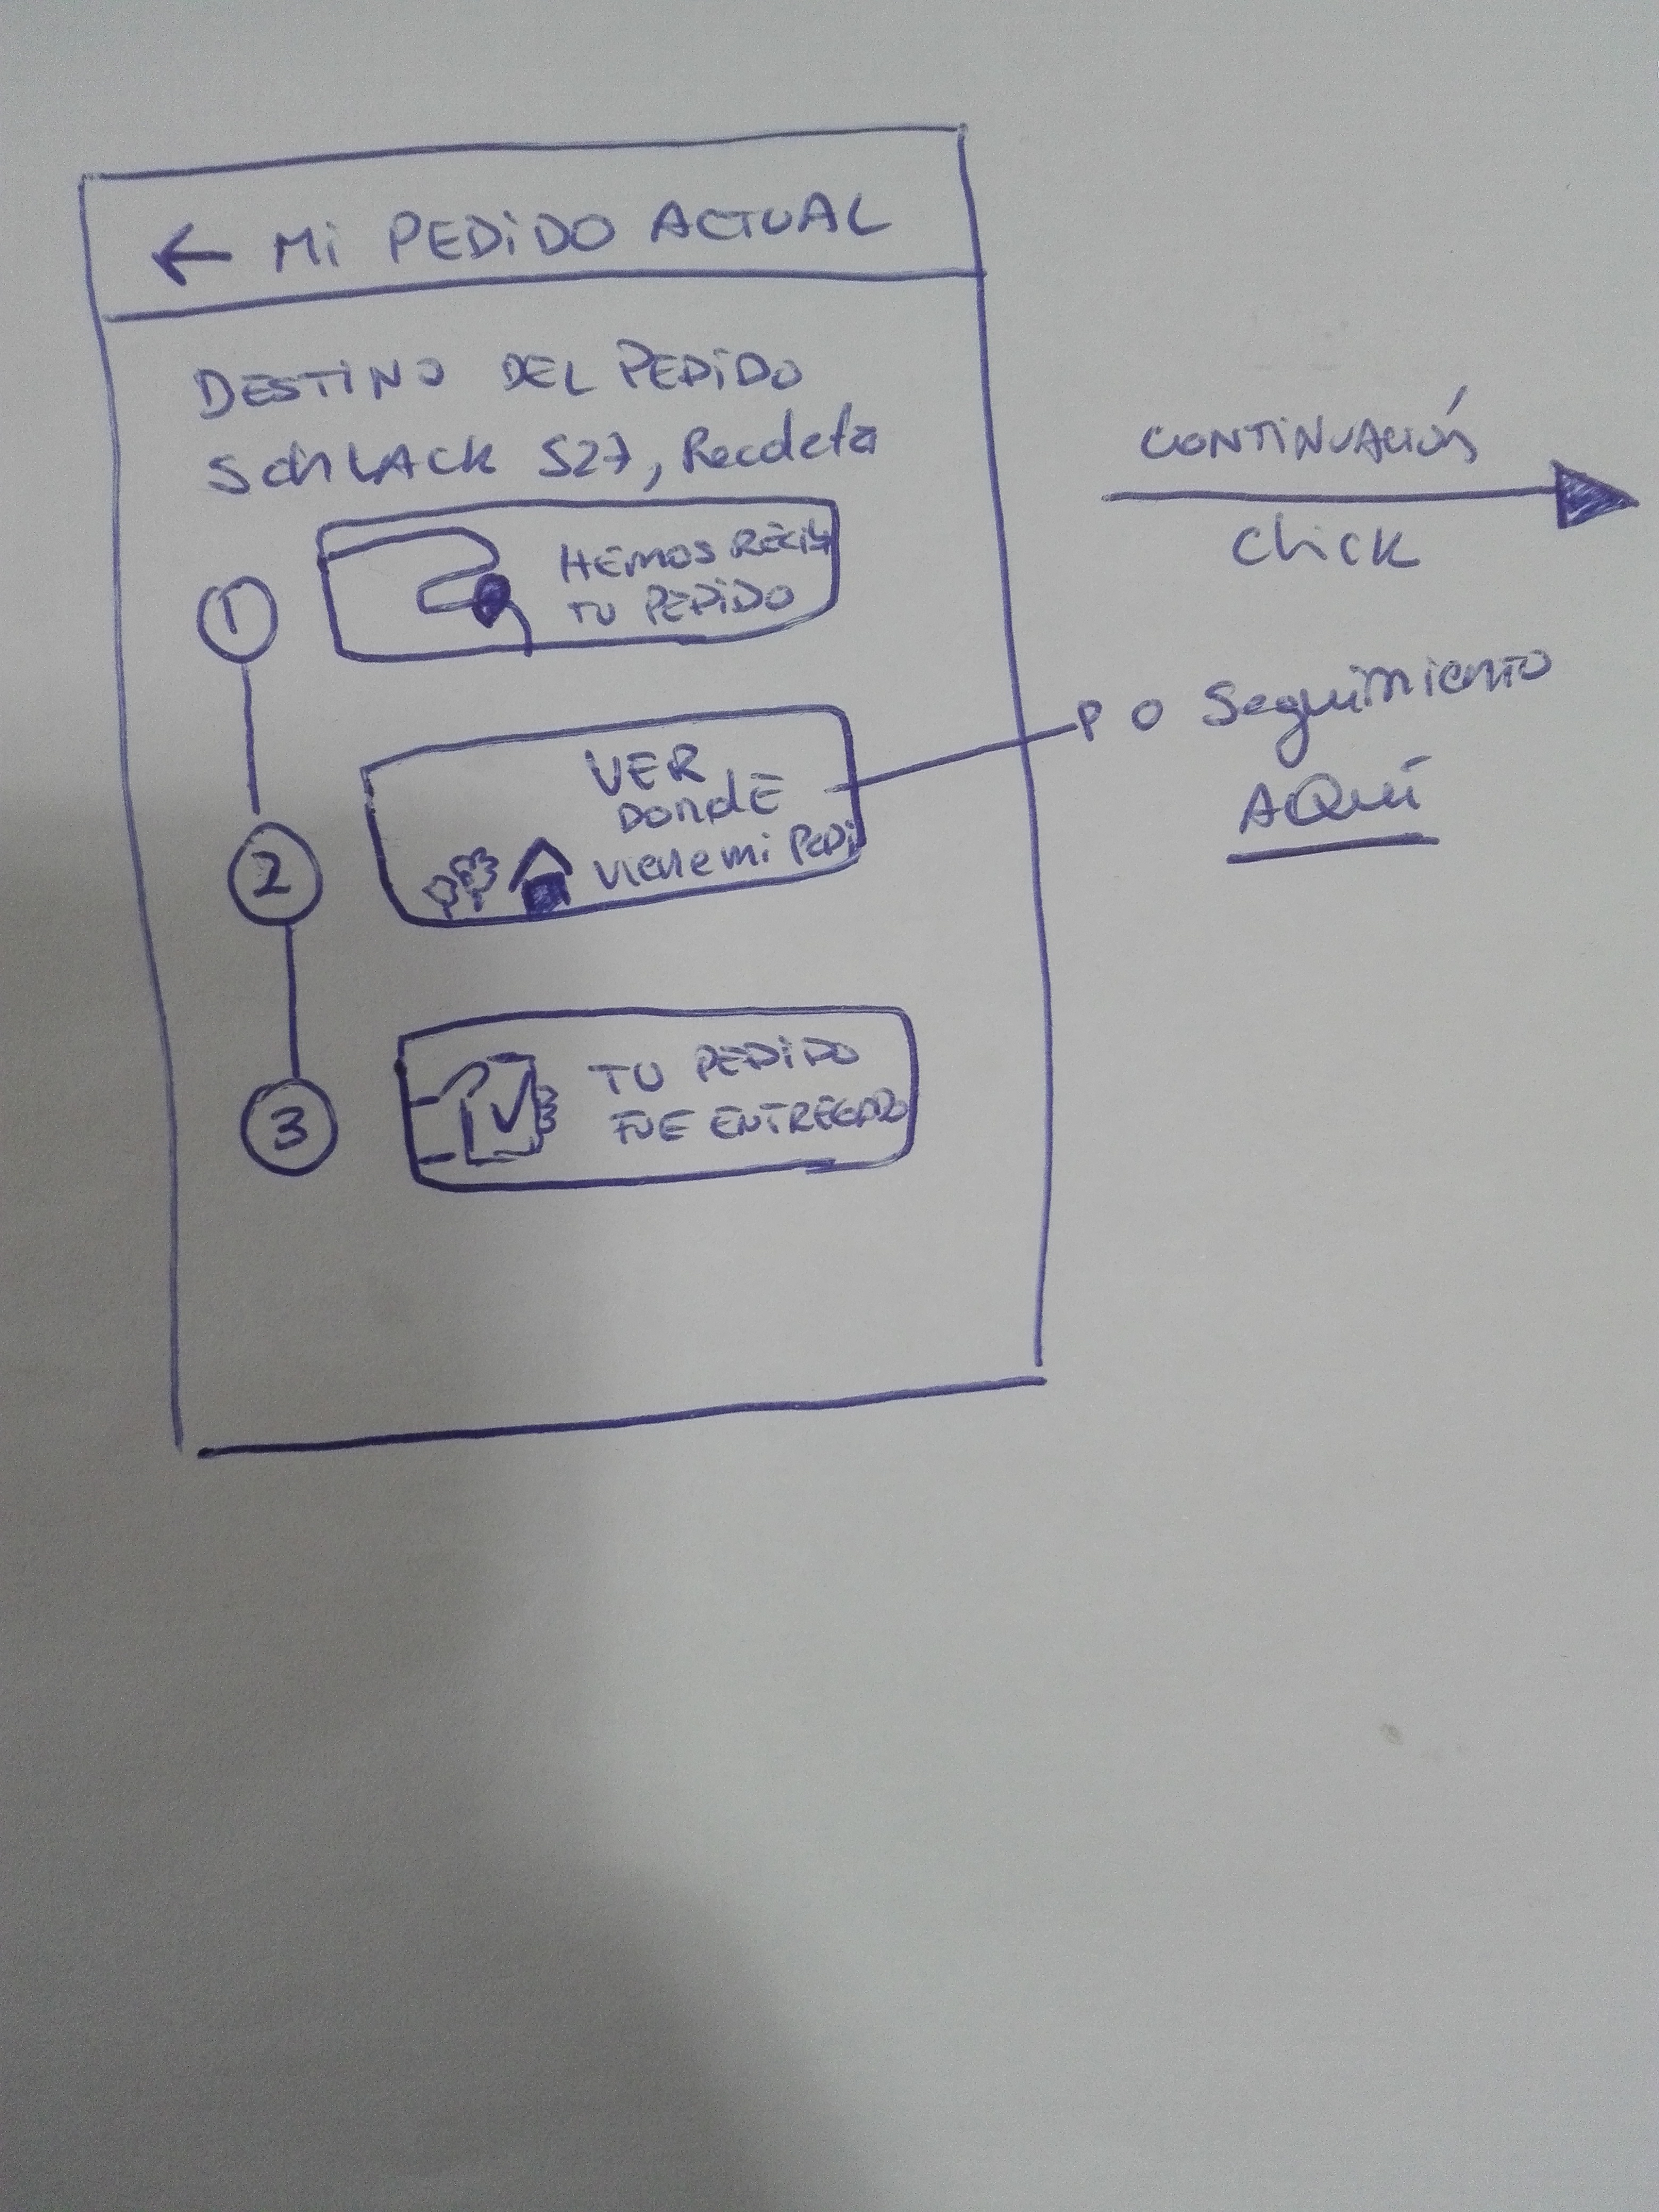 ← Mi PEDiDO ACTUAL
DESTiNO DEL PEDiDO
SCHLACK 527, Recoleta
1
HEMOS RECIB
TU PEDiDO
2
VER
DONDE
viene mi PEDi
3
TU PEDiDO
FUE ENTREGADO
CONTiNUACIÓN
Click
O Seguimiento
AQUÍ